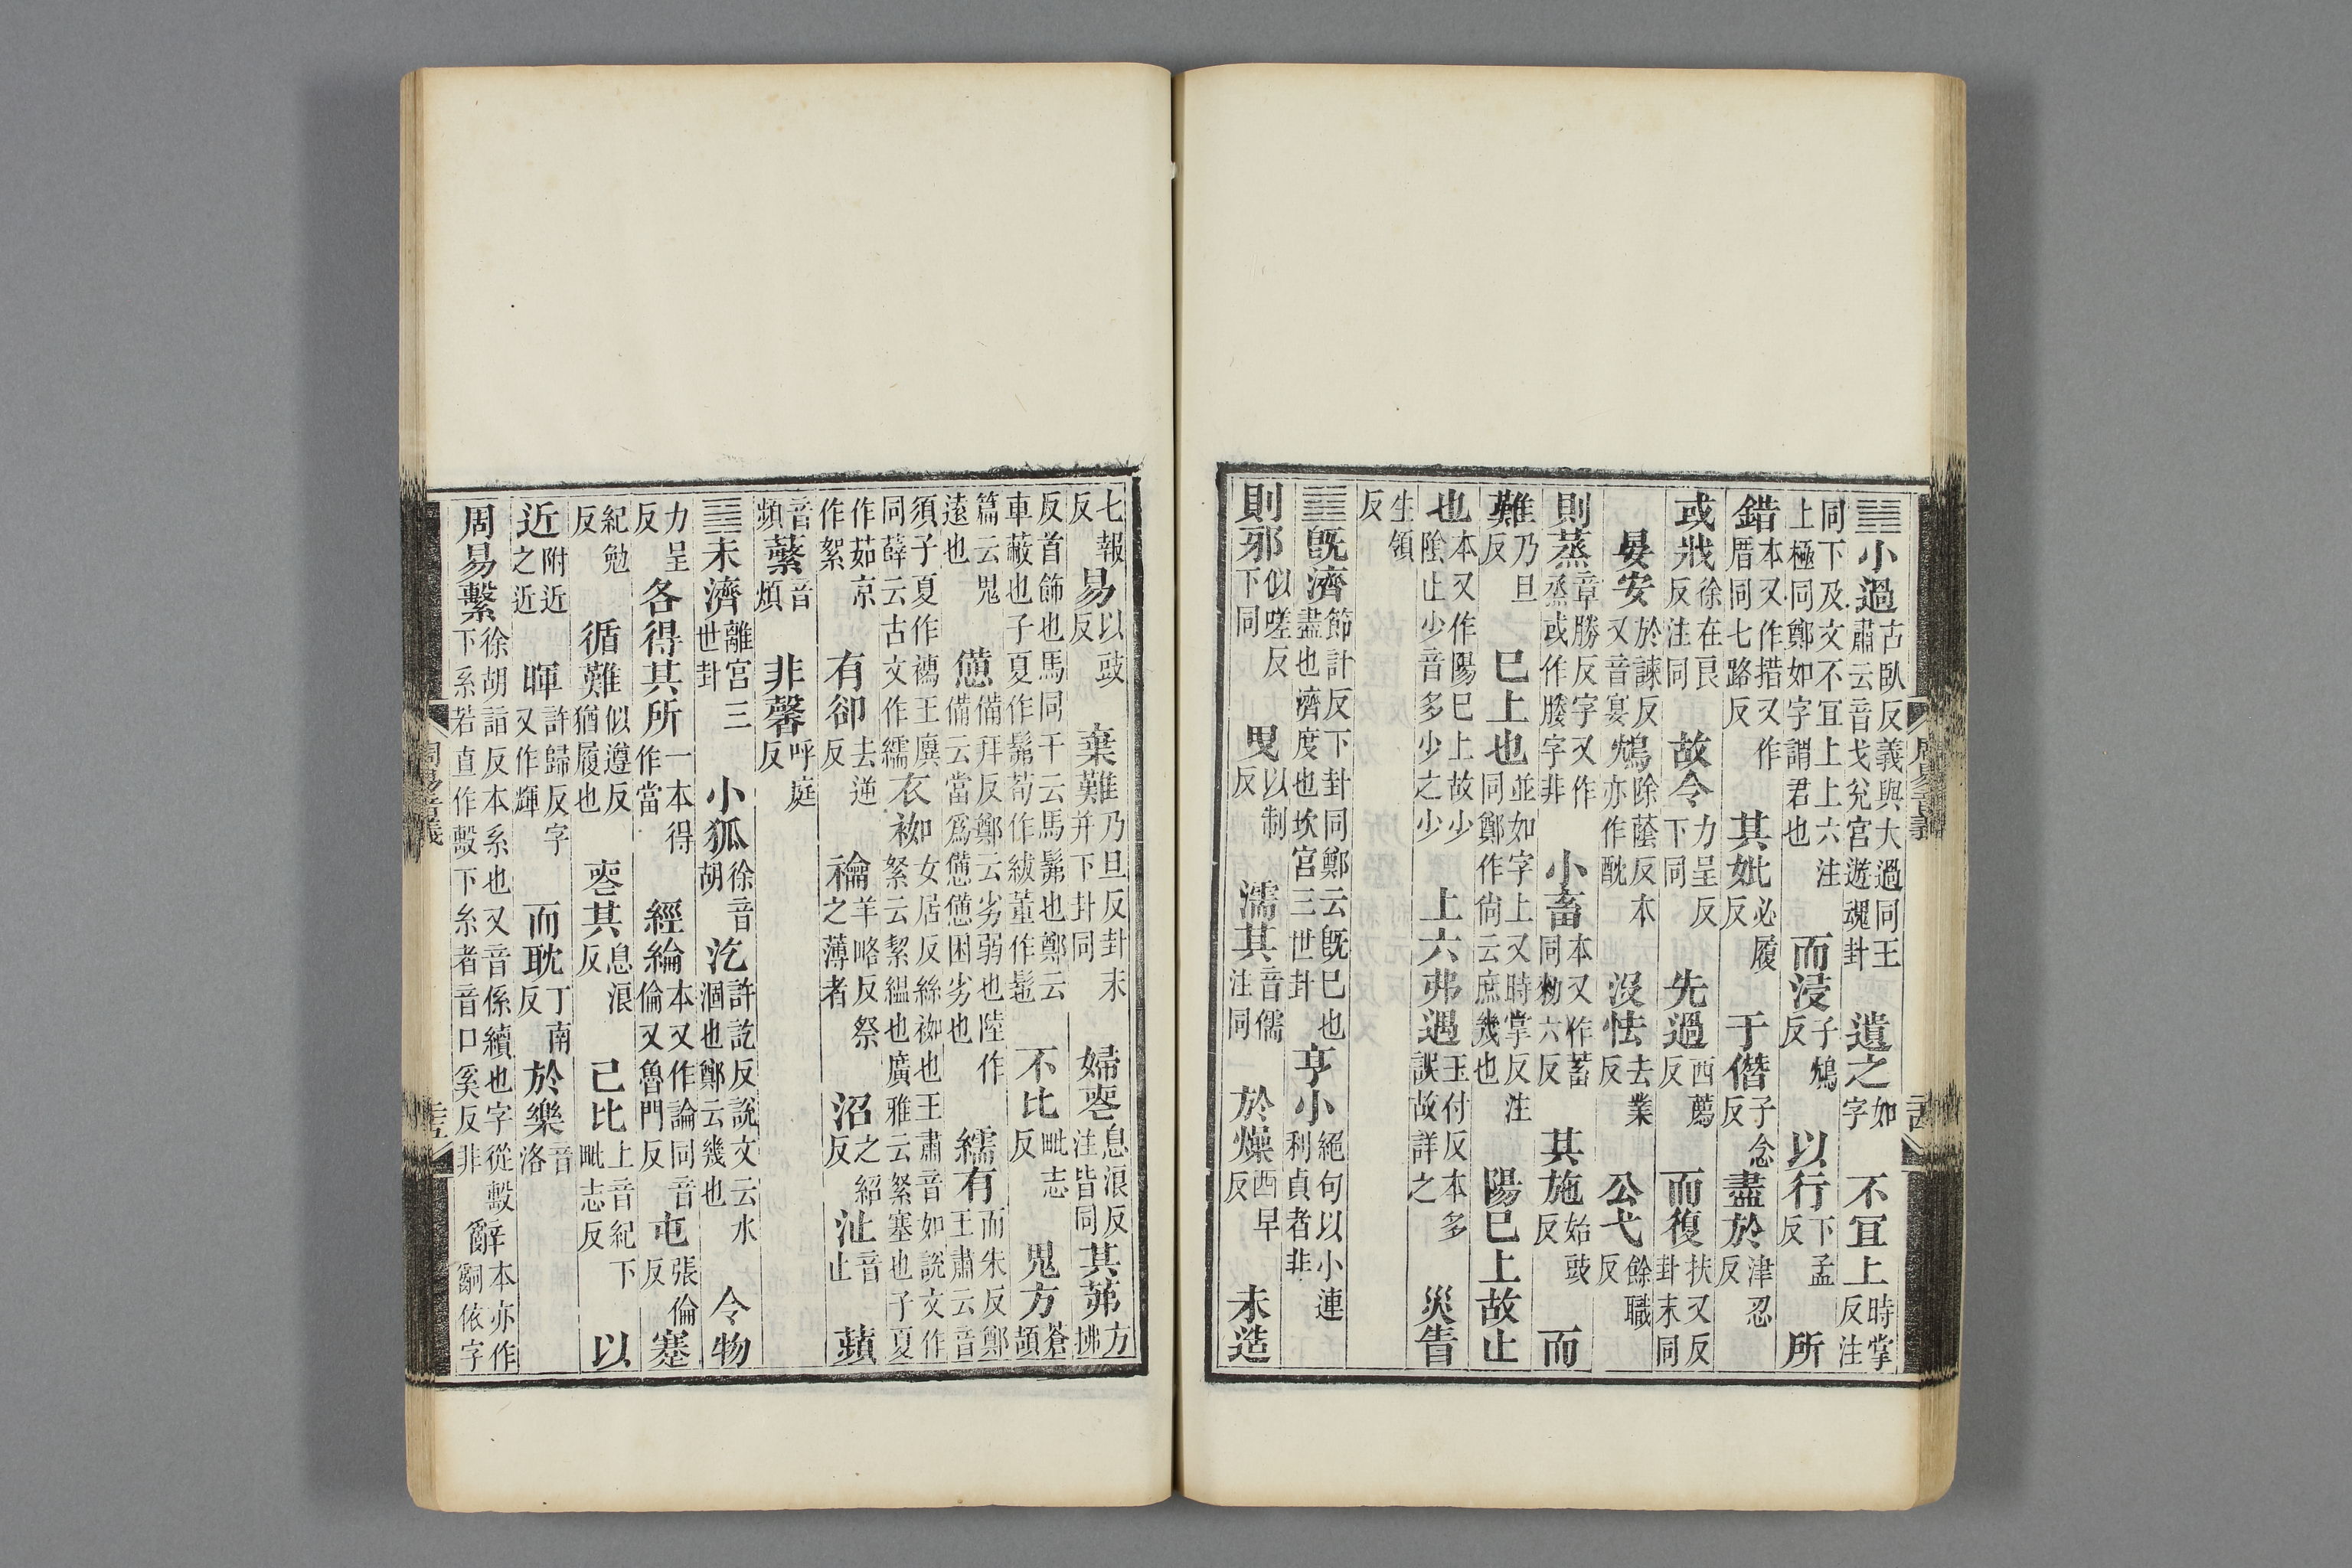 ䷽小過古臥反義與大過同王肅云音戈兌宮遊魂卦 遺之如字 不宜上時掌反注
同下及文不宜上上六注上極同鄭如字謂君也 而浸子鴆反 以行下孟反 所
錯本又作措又作厝同七路反 其妣必履反 于僭子念反 盡於津忍反
或戕徐在良反注同 故令力呈反下同 先過西薦反 而復扶又反卦末同
晏安於諫反又音宴 鴆除蔭反本亦作酖 沒怯去業反 公弋餘職反
則蒸章勝反字又作烝或作䒱字非 小畜本又作蓄同勑六反 其施始豉反 而
難乃旦反 已上也並如字上又時掌反注同鄭作尙云庶幾也 陽已上故止
也本又作陽已上故少陰止少音多少之少 上六弗遇玉付反本多誤故詳之 災眚
生領反
䷾旣濟節計反下卦同鄭云旣已也盡也濟度也坎宮三世卦 亨小絕句以小連利貞者非
則邪似嗟反下同 曳以制反 濡其音儒注同 於燥西早反 未造
七報反 易以豉反 棄難乃旦反卦末并下卦同 婦喪息浪反注皆同 其茀方拂
反首飾也馬同干云馬髴也鄭云車蔽也子夏作髴荀作紱董作髢 不比毗志反 鬼方蒼頡
篇云鬼遠也 憊備拜反鄭云劣弱也陸作備云當爲憊憊困劣也 繻有而朱反鄭王肅云音
須子夏作襦王廙同薛云古文作繻 衣袽女居反絲袽也王肅音如說文作絮云縕也廣雅云絮塞也子夏
作茹京作絮 有卻去逆反 禴羊略反祭之薄者 沼之紹反 沚音止 蘋
音頻 蘩音煩 非馨呼庭反
䷿未濟離宮三世卦 小狐徐音胡 汔許訖反說文云水涸也鄭云幾也 令物
力呈反 各得其所一本得作當 經綸本又作論同音倫又魯門反 屯張倫反 蹇
紀勉反 循難似遵反猶履也 喪其息浪反 己比上音紀下毗志反 以
近附近之近 暉許歸反字又作輝 而耽丁南反 於樂音洛
周易繫徐胡詣反本系也又音係續也字從毄下系若直作毄下糸者音口奚反非 辭本亦作嗣依字
周易音義 二十四
周易音義 二十五